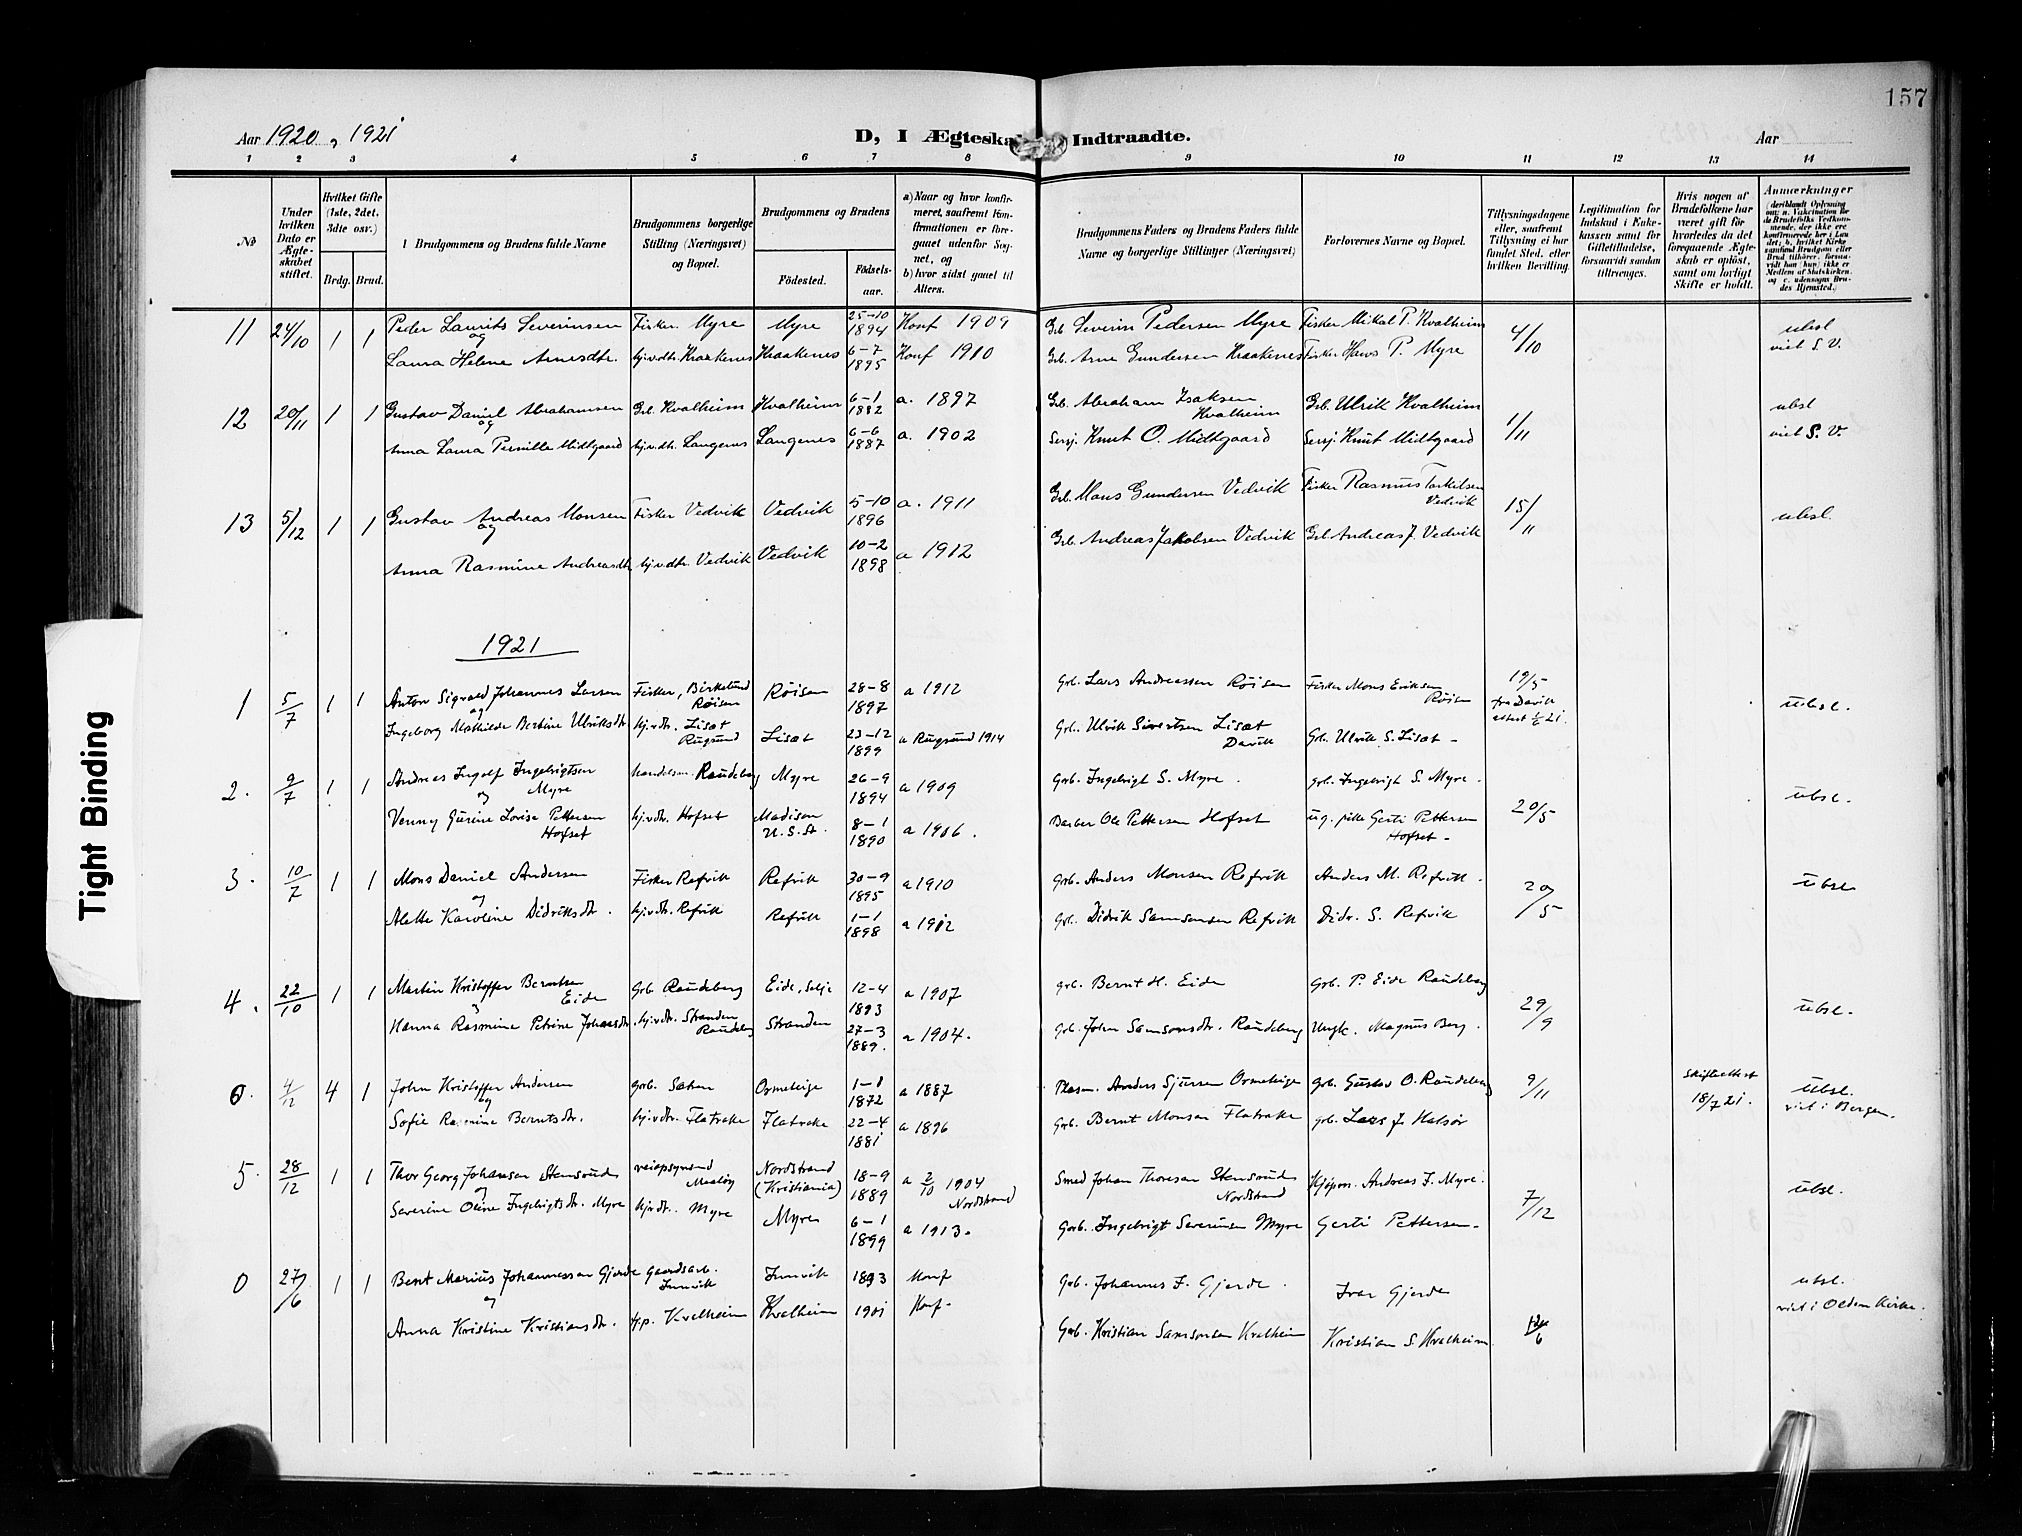 157
Aar 1920, 1921
D, I Ægteska Indtraadte.
Aar
1 2 3 4 5 6 7 8 9 10 11 12 13 14
No
Under hvilken Dato er Ægteskabet stiftet.
Hvilket Gifte (1ste, 2det, 3dte osv.)
Brdg. Brud.
Brudgommens og Brudens fulde Navne
Brudgommens borgerlige Stilling (Næringsvei) og Bopæl.
Brudgommens og Brudens
Födested.
Födselsaar.
a) Naar og hvor konfirmeret, saafremt Konfirmationen er foregaaet udenfor Sognet, og
b) hvor sidst gaaet til Alters.
Brudgommens Faders og Brudens Faders fulde Navne og borgerlige Stillinger (Næringsvei)
Forlovernes Navne og Bopæl.
Tillysningsdagene eller, saafremt Tillysning ei har fundet Sted, efter hvilken Bevilling.
Legitimation for Indskud i Enkekassen samt for Giftetilladelse, forsaavidt saadan tiltrænges.
Hvis nogen af Brudefolkene har været gift før hvorledes da det foregaaende Ægteskab er opløst, samt om lovligt Skifte er holdt.
Anmærkninger
11 24/10 1 1 Peder Laurits Severinsen Fisker. Myre Myre 25-10 1894 Konf 1909 Gb. Severin Pedersen Myre Fisker Mikal P. Kvalheim 4/10 ubsl
og
Laura Helene Arnesdtr. hjv.dtr. Kraakenes Kraakenes 6-7 1895 Konf 1910 Gb. Arne Gundersen Kraakenes Fisker Hans P. Myre viet S.V.
12 20/11 1 1 Gustav Daniel Abrahamsen Gb. Kvalheim Kvalheim 6-1 1882 a. 1897 Gb. Abraham Isaksen Kvalheim Gb. Ulrik Kvalheim 1/11 ubsl
og
Anna Laura Pernille Midtgaard hjv.dtr. Langenes Langenes 6-6 1887 a. 1902 Sersj. Knut O. Midtgaard Sersj. Knut Midtgaard viet S.V.
13 5/12 1 1 Gustav Andreas Monsen Fisker Vedvik Vedvik 5-10 1896 a. 1911 Gb. Mons Gundersen Vedvik Fisker Rasmus Torkilsen Vedvik 15/11 ubsl.
og
Anna Rasmine Andreasdtr hjv.dtr. Vedvik Vedvik 10-2 1898 a 1912 Gb. Andreas Jakobsen Vedvik Gb Andreas J. Vedvik
1921
1 5/7 1 1 Anton Sigvald Johannes Larsen Fisker, Birkelund Röisen Röisen 28-8 1897 a 1912 Grb. Lars Andreassen Röisen Fisker Mons Eriksen Röisen 19/5 fra Davik attest 1/6 21. ubsl.
og
Ingeborg Mathilde Bertine Ulriksdtr hjv.dtr. Lisæt Rugsund Lisæt 23-12 1899 a Rugsund 1914 Grb. Ulrik Sivertsen Lisæt Davik Grb. Ulrik S. Lisæt -
2. 9/7 1 1 Andreas Ingolf Ingebrigtsen Myre handelsm. Raudeberg Myre 26-9 1894 a 1909 Grb. Ingebrigt S. Myre. grb. Ingebrigt S. Myre. 20/5 ubsl.
og
Venny Gurine Lovise Pettersen Hofset hjv.dtr. Hofset Madison U.S.A. 8-1 1890 a 1906. Barber Ole Pettersen Hofset ug. pike Gerti Pettersen Hofset -
3. 10/7 1 1 Mons Daniel Andersen Fisker Refvik Refvik 30-9 1895 a 1910 grb. Anders Monsen Refvik Anders M. Refvik. 20/5 ubsl
og
Alette Karoline Didriksdtr. hjv.dtr. Refvik Refvik 1-1 1898 a 1912 Grb. Didrik Samsonsen Refvik Didr. S. Refvik
4. 22/10 1 1 Martin Kristoffer Berntsen Eide Grb Raudeberg Eide, Selje 12-4 1893 a 1907 grb. Bernt H. Eide Grb. P. Eide Raudeberg 29/9 ubsl.
Hanna Rasmine Petrine Johnsdtr. hjv.dtr. Stranden Raudeberg Stranden 27-3 1889. a 1904. grb. John Samsonsdtr. Raudeberg Ungk. Magnus Berg.
0. 4/12 4 1 John Kristoffer Andersen grb. Saten Ormeteige 1-1 1872 a 1887 Plasm. Anders Sjursen Ormeteige grb. Gustav O. Raudeberg 9/11 Skifteattest 18/7 21. ubsl.
og
Sofie Rasmine Berntsdtr. hjv.dtr. Flatrake Flatrake 22-4 1881 a 1896 grb. Bernt Monsen Flatrake grb. Lars J. Halsör viet i Bergen.
5. 28/12 1 1 Thor Georg Johansen Stensrud veiopsynsmd Maalöy Nordstrand (Kristiania) 18-9 1889 a 2/10 1904 Nordstrand Smed Johan Thoresen Stensrud Nordstrand Kjöpm. Andreas I. Myre. 7/12 ubsl.
og
Severine Oline Ingebrigtsdtr. Myre hjvdtr. Myre Myre 6-1 1899 a 1913. Grb. Ingebrigt Severinsen Myre Gerti Pettersen -
0 27/6 1 1 Bent Marius Johannessen Gjerde Gaardsarb. Innvik Innvik 1893 Konf Grb. Johannes I. Gjerde. Ivar Gjerde 12/6 ubsl.
og
Anna Kristine Kristiansdtr. Kvalheim Kvalheim 1901 Konf - Grb. Kristian Samsonsen Kvalheim Kristian S. Kvalheim viet i Olden Kirke.
Tight Binding